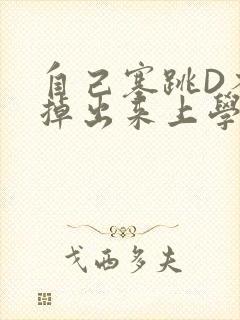 自己塞跳D不
掉出来上學
戈西多夫